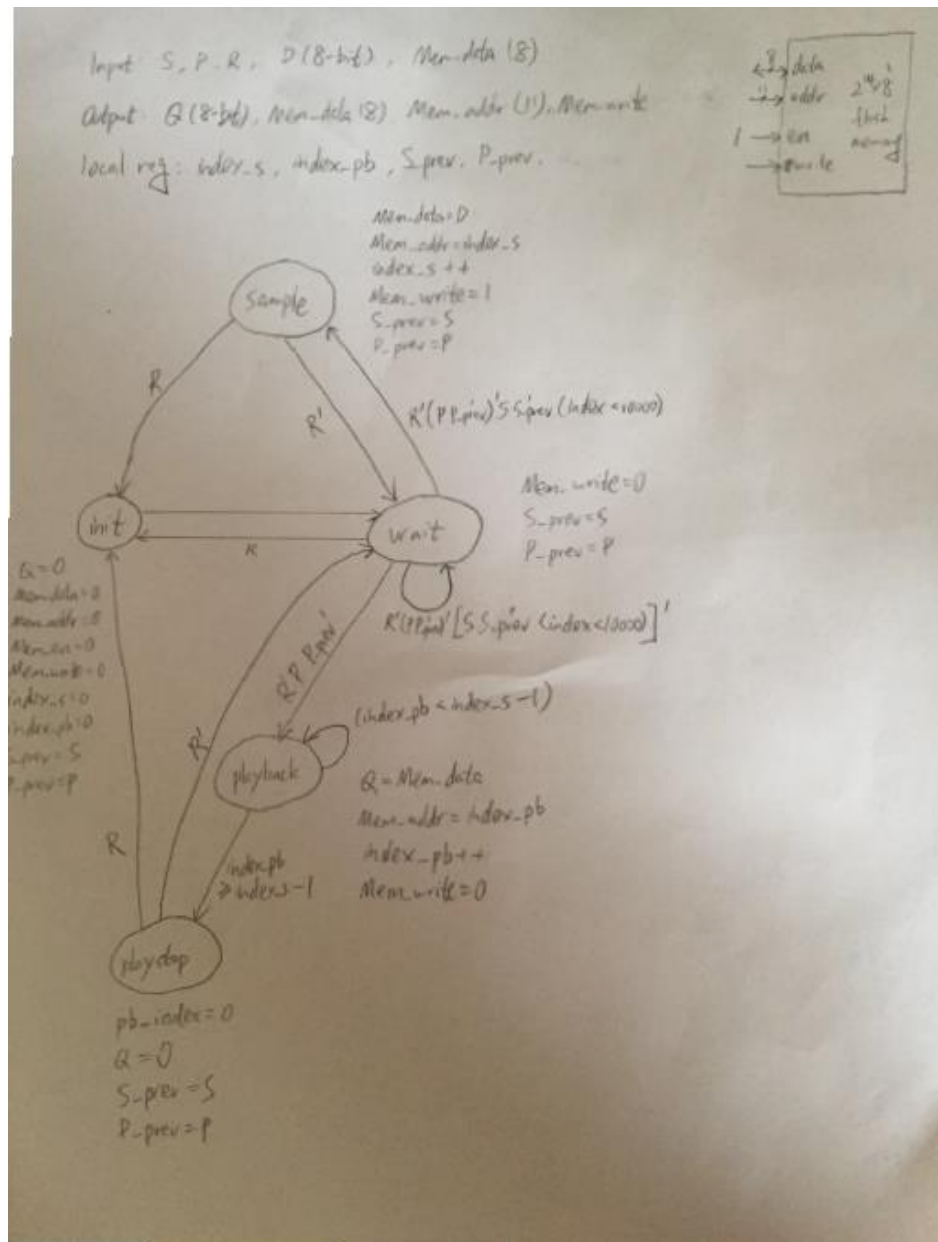 Input: S, P, R, D(8-bit), Mem_data(8)
Output: Q(8-bit), Mem_data(8) Mem_addr(), Mem_write
local reg: index_s, index_pb, S_prev, P_prev.
data
addr
8
flash
memory
1
en
write
Mem_data=D
Mem_addr=index_s
index_s++
Mem_write=1
S_prev=S
P_prev=P
Sample
R
R'
R'(P P_prev')'S S_prev'(index<10000)
init
wait
R
Mem_write=0
S_prev=S
P_prev=P
R'(PP_prev')'[S S_prev'(index<10000)]'
Q=0
Mem_data=0
Mem_addr=0
Mem_en=0
Mem_write=0
index_s=0
index_pb=0
S_prev=S
P_prev=P
R'P P_prev'
(index_pb<index_s-1)
R'
playback
Q=Mem_data
Mem_addr=index_pb
index_pb++
Mem_write=0
R
index_pb
≥index_s-1
playstop
pb_index=0
Q=0
S_prev=S
P_prev=P